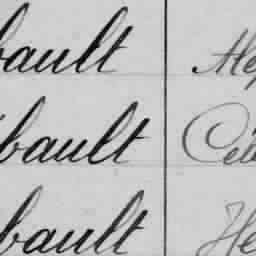 bault Alep
bault Céle
bault He